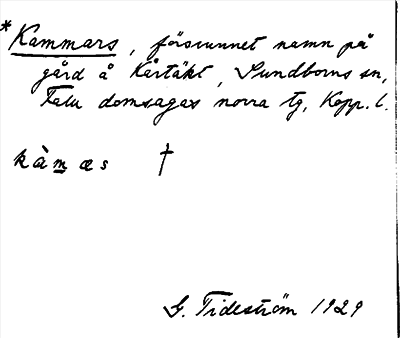 *Kammars, försvunnet namn på
gård å Kårtäkt, Sundborns sn,
Falu domsagas norra tg, Kopp. l.
kàmæs †
G. Tideström 1929